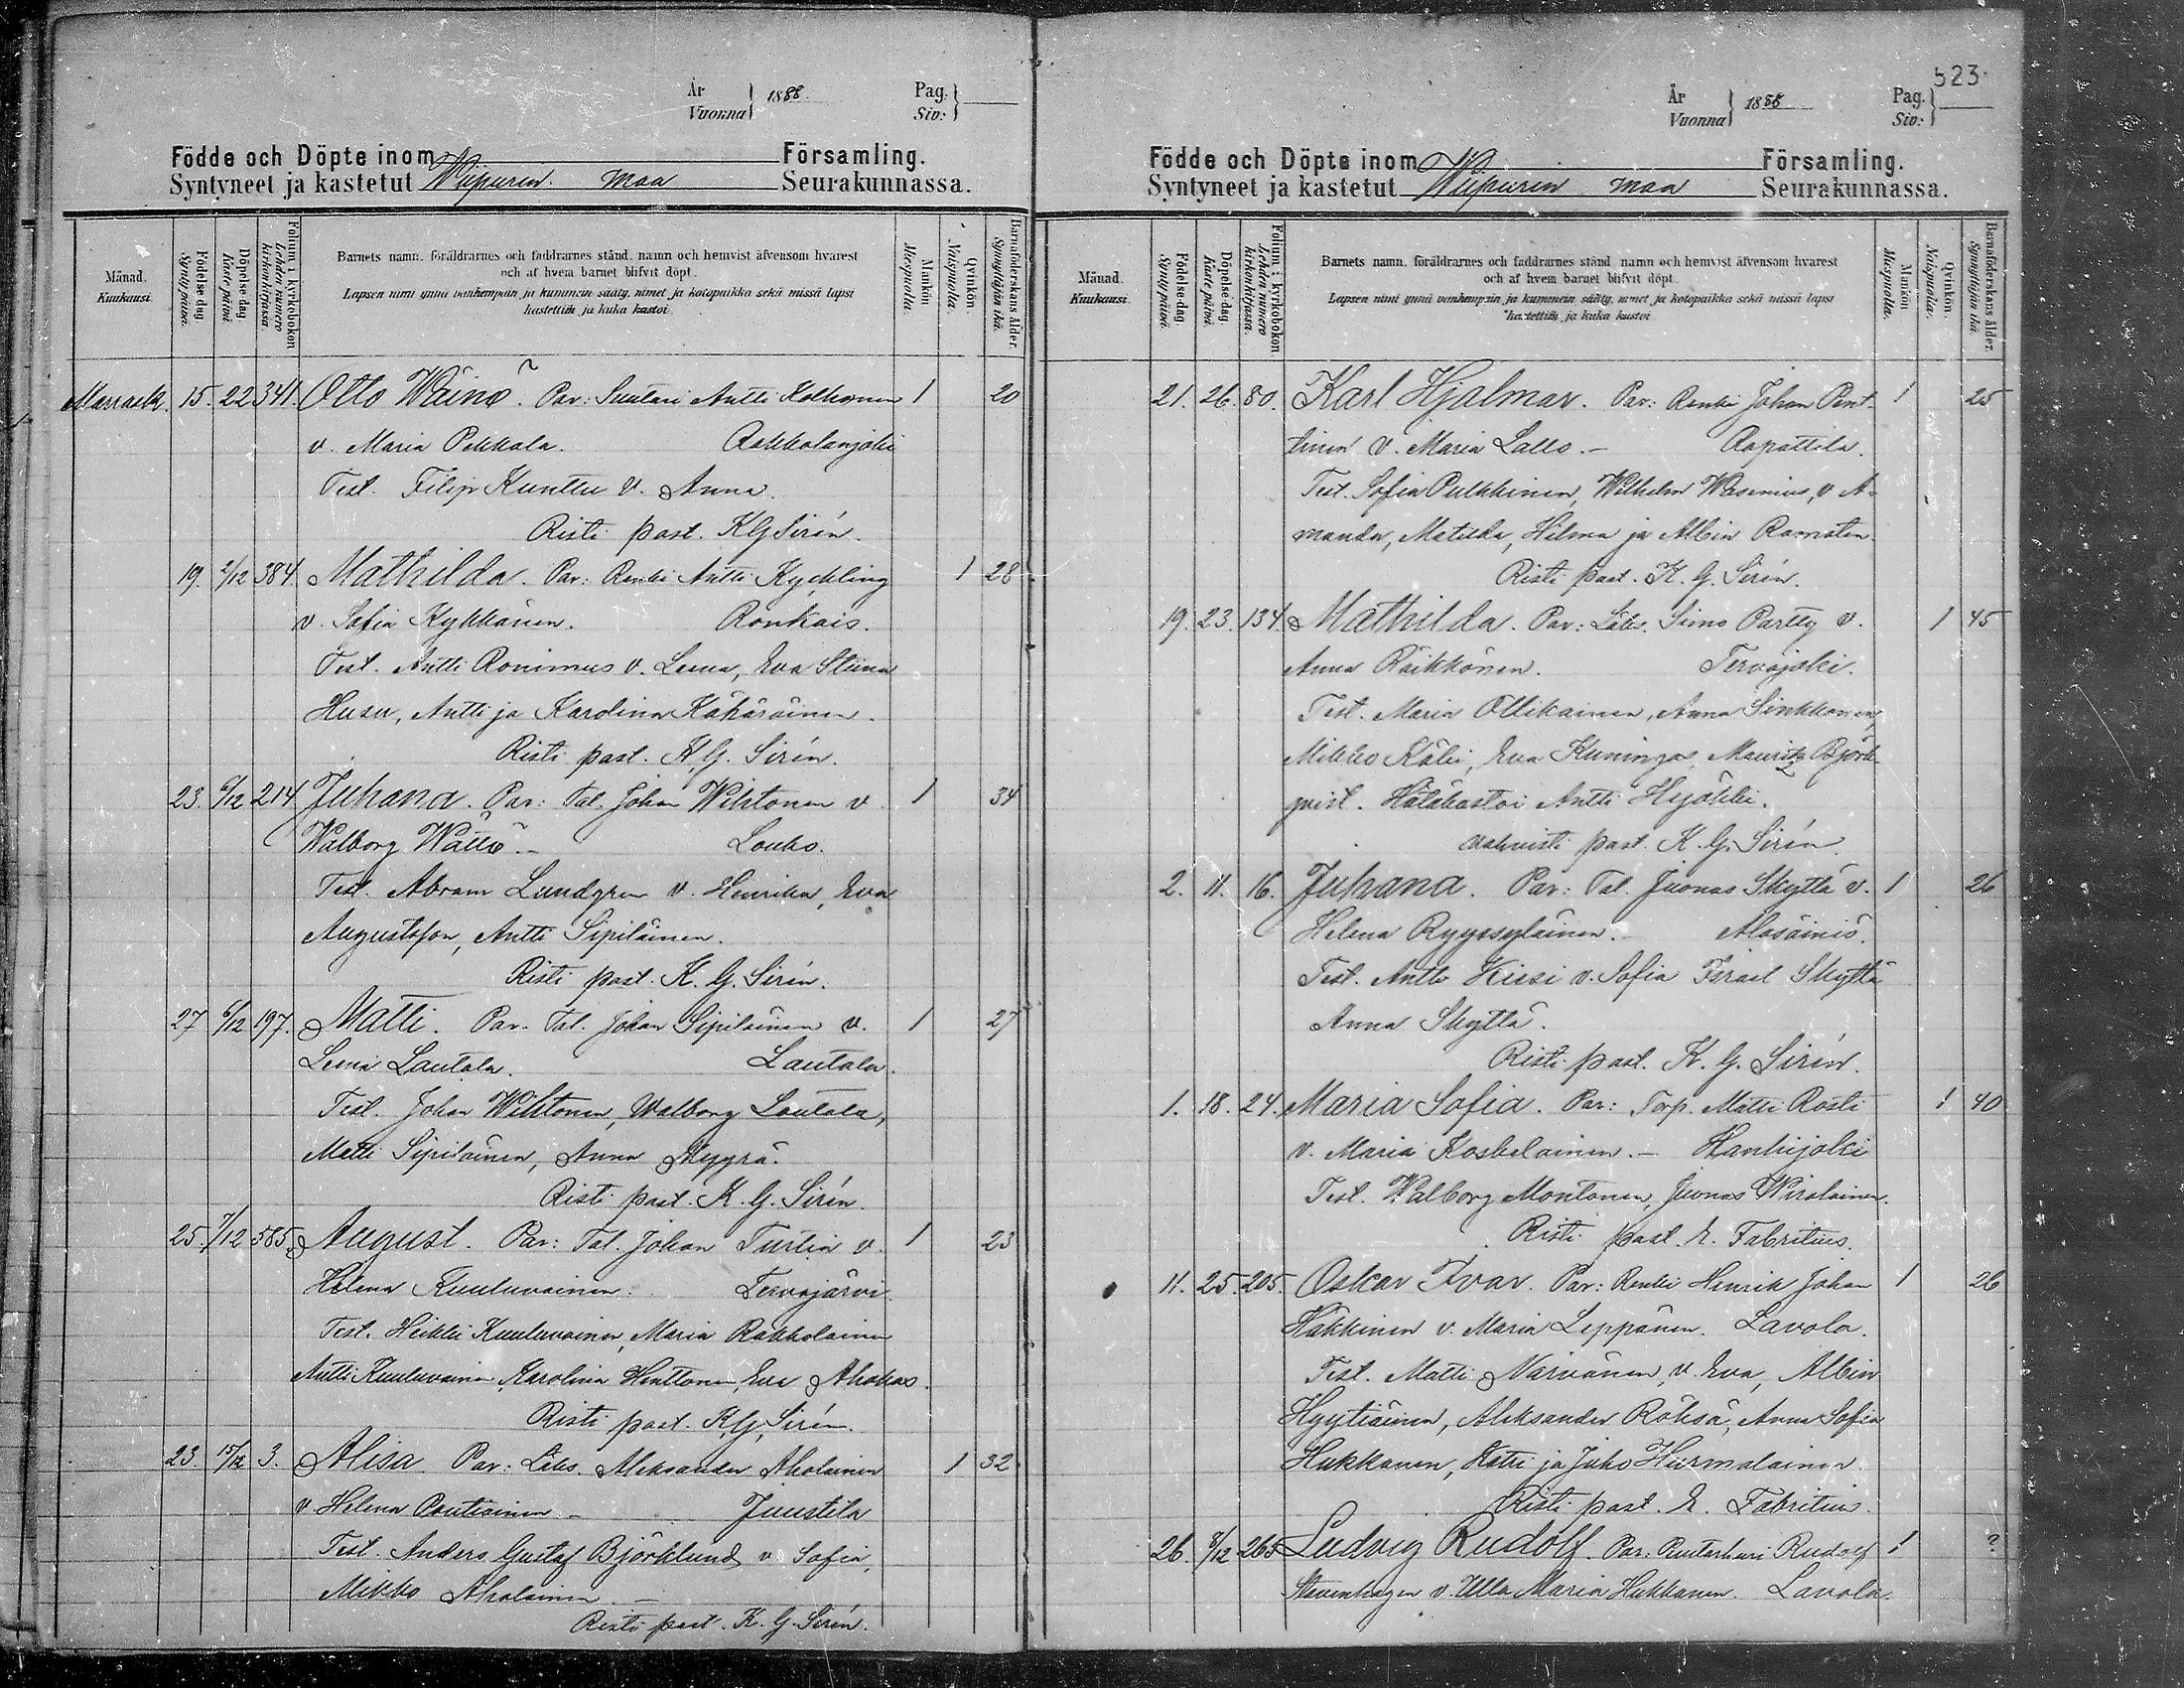 År
Vuonna } 1888.
Pag.
Siv: }
Födde och Döpte inom Församling.
Syntyneet ja kastetut Wiipurin maa Seurakunnassa.
Månad.
Kuukausi.
Födelse dag.
Synty päivä.
Döpelse dag.
Kaste päivä.
Folium i kyrkoboken
Lehden numero kirkonkirjassa.
Barnets namn, föräldrarnes och faddrarnes stånd, namn och hemvist äfvensom hvarest
och af hvem barnet blifvit döpt.
Lapsen nimi ynnä vanhempain ja kummein sääty, nimet ja kotopaikka sekä missä lapsi
kastettiin ja kuka kastoi.
Mankön.
Miespuolia.
Qvinkön.
Naispuolia.
Barnaföderskans ålder.
Synnyttäjän ikä.
Marrask. 15. 22 341. Otto Wäinö. Par: Suutari Antti Kolhonen 1 20
v. Maria Pekkala. Rakkolanjoki
Test. Filip Kunttu v. Anna.
Risti past. K G Sirén.
19. 2/12 384. Mathilda. Par: Renki Antti Kyckling 1 28
v. Sofia Kykkänen. Ronkais.
Test. Antti Ronimus v. Leena, Eva Stiina
Husu, Antti ja Karolina Kähäräinen.
Risti past. K. G. Sirén.
23. 6/12 214 Juhana. Par: Tal. Johan Wihtonen v. 1 34
Walborg Wättö. Louko.
Test. Abram Lundgren v. Henrika, Eva
Augustsson, Antti Sipiläinen.
Risti past. K. G. Sirén.
27 6/12 197. Matti. Par. Tal. Johan Sipiläinen v. 1 27
Leena Lautala. Lautala.
Test. Johan Wihtonen, Walborg Lautala,
Matti Sipiläinen, Anna Myyrä.
Risti past. K. G. Sirén.
25. 7/12 585. August. Par: Tal. Johan Turtia v. 1 23
Helena Kuuluvainen. Tervajärvi.
Test. Heikki Kuuluvainen, Maria Rakkolainen
Antti Kuuluvainen, Karolina Henttonen, Eva Ahokas.
Risti past. K. G. Sirén.
23. 15/12 3. Alisa. Par: Läks. Aleksander Aholainen 1 32
v. Helena Poutiainen. Juustila
Test. Anders Gustaf Björklund v. Sofia,
Mikko Aholainen.
Risti past. K. G. Sirén.
523
År
Vuonna } 1888
Pag.
Siv: }
Födde och Döpte inom Församling.
Syntyneet ja kastetut Wiipurin maa Seurakunnassa.
Månad.
Kuukausi.
Födelse dag.
Synty päivä.
Döpelse dag.
Kaste päivä.
Folium i kyrkoboken
Lehden numero kirkonkirjassa.
Barnets namn, föräldrarnes och faddrarnes stånd, namn och hemvist äfvensom hvarest
och af hvem barnet blifvit döpt.
Lapsen nimi ynnä vanhempain ja kummein sääty, nimet ja kotopaikka sekä missä lapsi
kastettiin ja kuka kastoi
Mankön
Miespuolia.
Qvinkön.
Naispuolia.
Barnaföderskans ålder.
Synnyttäjän ikä.
21. 26. 80. Karl Hjalmar. Par: Renki Johan Pent- 1 25
tinen v. Maria Lallo. Rapattila.
Test. Sofia Pulkkinen, Wilhelm Wasenius, v A-
manda, Matilda, Hilma ja Albin Ramsten.
Risti past. K. G. Sirén.
19. 23. 134. Mathilda. Par: Läks. Simo Partty v. 1 45
Anna Räikkönen. Tervajoki.
Test. Maria Ollikainen, Anna Sinkkonen,
Mikko Käki, Eva Kuningas, Mauritz Björk-
qvist. Hätäkastoi Antti Hyökki.
vahvisti past. K. G. Sirén.
2. 11. 16. Juhana. Par: Tal. Juonas Skyttä v. 1 26
Helena Ryyssyläinen. Alasäiniö.
Test. Antti Kiesi v. Sofia Israel Skyttä
Anna Skyttä.
Risti past. K. G. Sirén.
1. 18. 24. Maria Sofia. Par: Torp. Matti Rosti 1 40
v. Maria Koskelainen. Hanhijoki
Test. Walborg Montonen, Juonas Wirolainen.
Risti past. E. Fabritius.
11. 25. 205. Oskar Ivar. Par: Renki Henrik Johan 1 26
Häkkinen v. Maria Leppänen. Lavola.
Test. Matti Närvänen, v. Eva, Albin
Hyytiäinen, Aleksander Röksä, Anna Sofia
Hukkanen, Katri ja Juho Hurmalainen.
Risti past. E. Fabritius.
26. 8/12 265 Ludvig Rudolf. Par: Puutarhuri Rudolf 1 ?
Stavenhagen v. Ulla Maria Hukkanen. Lavola.